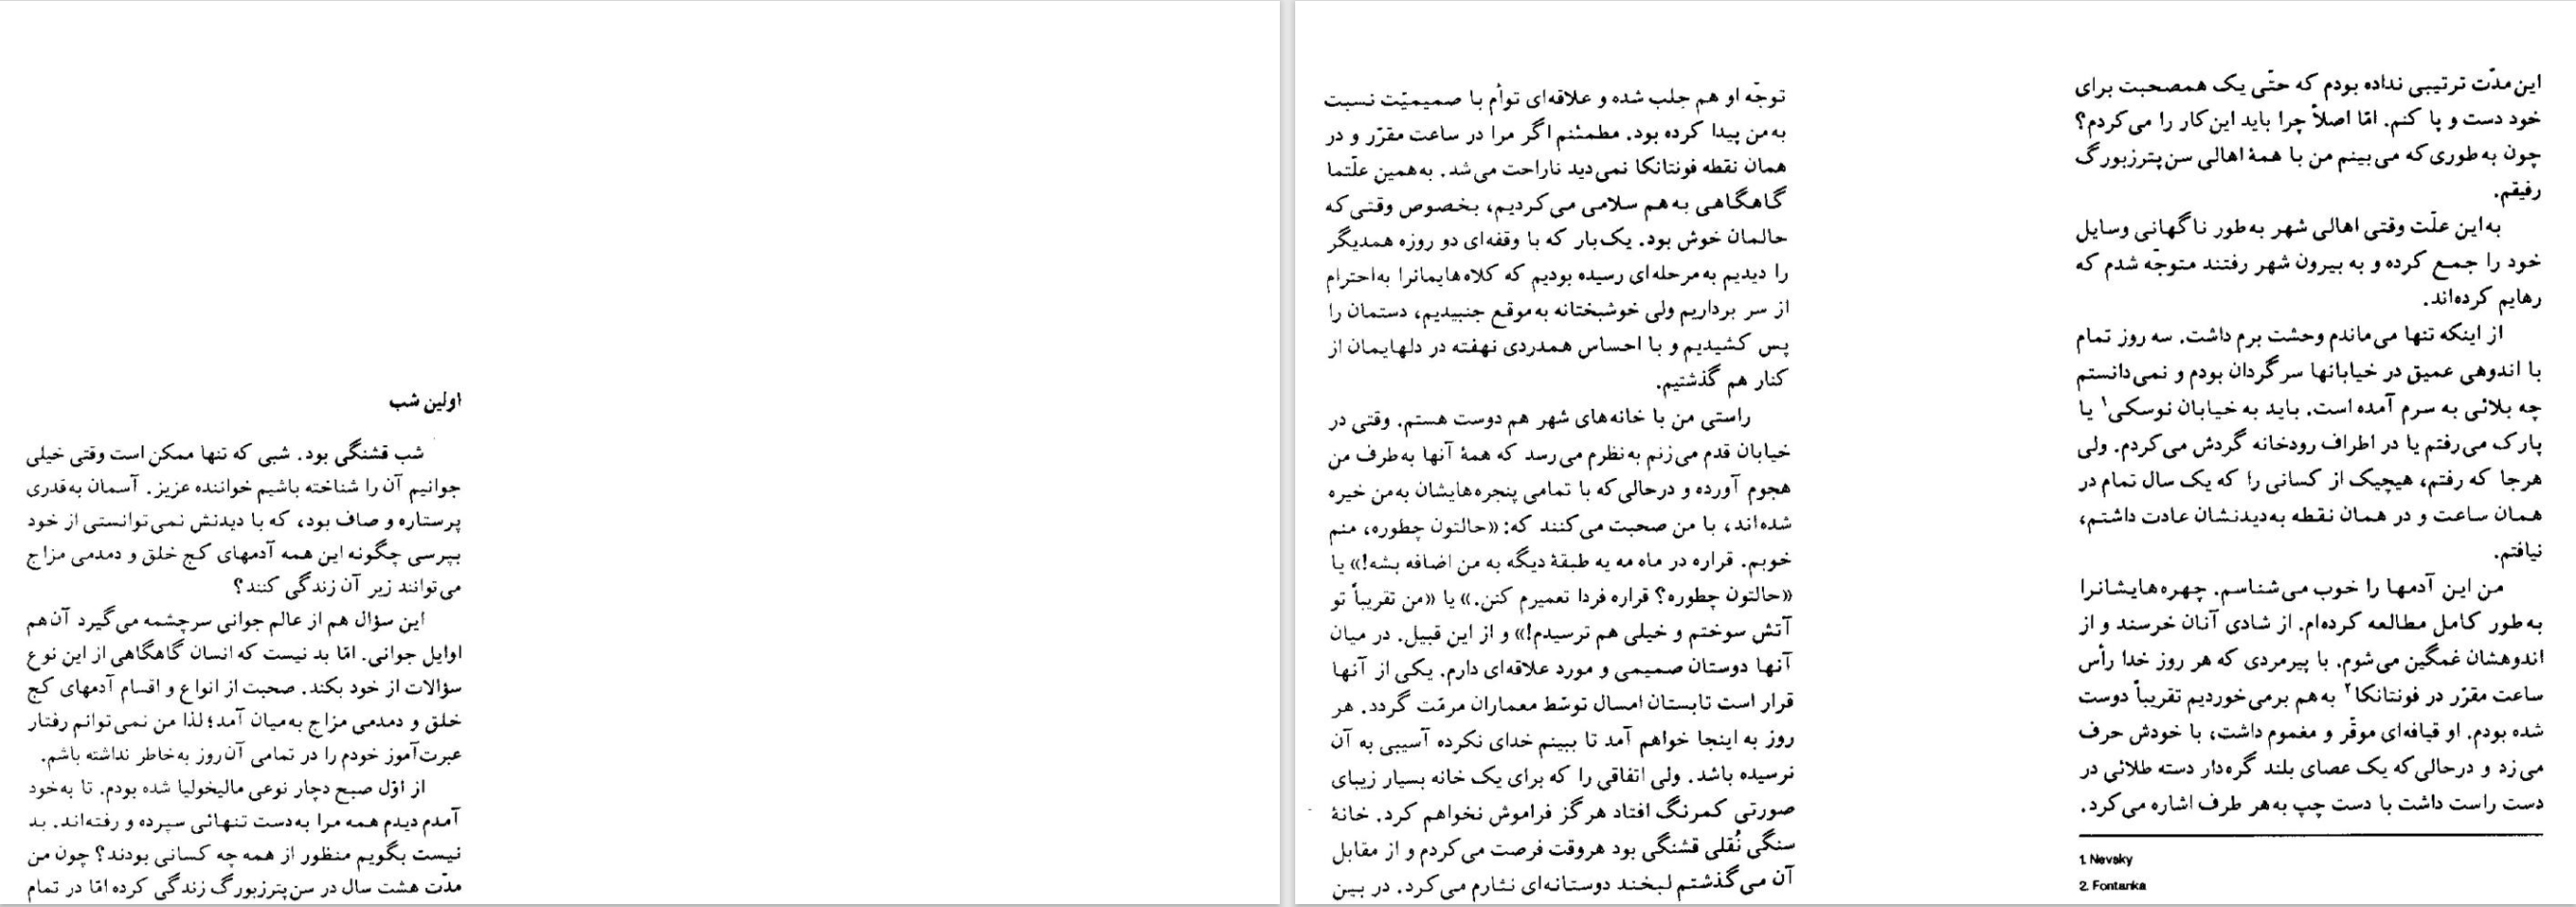 اولین شب
شب قشنگی بود. شبی که تنها ممکن است وقتی خیلی
جوانیم آن را شناخته باشیم خواننده عزیز. آسمان به‌قدری
پرستاره و صاف بود، که با دیدنش نمی‌توانستی از خود
بپرسی چگونه این همه آدمهای کج خلق و دمدمی مزاج
می‌توانند زیر آن زندگی کنند؟
این سؤال هم از عالم جوانی سرچشمه می‌گیرد آن‌هم
اوایل جوانی. امّا بد نیست که انسان گاهگاهی از این نوع
سؤالات از خود بکند. صحبت از انواع و اقسام آدمهای کج
خلق و دمدمی مزاج به‌میان آمد؛ لذا من نمی‌توانم رفتار
عبرت‌آموز خودم را در تمامی آن‌روز به‌خاطر نداشته باشم.
از اوّل صبح دچار نوعی مالیخولیا شده بودم. تا به‌خود
آمدم دیدم همه مرا به‌دست تنهائی سپرده و رفته‌اند. بد
نیست بگویم منظور از همه چه کسانی بودند؟ چون من
مدّت هشت سال در سن‌پترزبورگ زندگی کرده امّا در تمام
این مدّت ترتیبی نداده بودم که حتّی یک همصحبت برای
خود دست و پا کنم. امّا اصلاً چرا باید این‌کار را می‌کردم؟
چون به‌طوری‌که می‌بینم من با همهٔ اهالی سن‌پترزبورگ
رفیقم.
به‌این علّت وقتی اهالی شهر به‌طور ناگهانی وسایل
خود را جمع کرده و به بیرون شهر رفتند متوجّه شدم که
رهایم کرده‌اند.
از اینکه تنها می‌ماندم وحشت برم داشت. سه روز تمام
با اندوهی عمیق در خیابانها سرگردان بودم و نمی‌دانستم
چه بلائی به سرم آمده است. باید به خیابان نوسکی۱ یا
پارک می‌رفتم یا در اطراف رودخانه گردش می‌کردم. ولی
هرجا که رفتم، هیچیک از کسانی را که یک سال تمام در
همان ساعت و در همان نقطه به‌دیدنشان عادت داشتم،
نیافتم.
من این آدمها را خوب می‌شناسم. چهره‌هایشانرا
به‌طور کامل مطالعه کرده‌ام. از شادی آنان خرسند و از
اندوهشان غمگین می‌شوم. با پیرمردی که هر روز خدا رأس
ساعت مقرّر در فونتانکا۲ به‌هم برمی‌خوردیم تقریباً دوست
شده بودم. او قیافه‌ای موقّر و مغموم داشت، با خودش حرف
می‌زد و درحالی‌که یک عصای بلند گره‌دار دسته طلائی در
دست راست داشت با دست چپ به‌هر طرف اشاره می‌کرد.
1. Nevsky
2. Fontanka
توجّه او هم جلب شده و علاقه‌ای توأم با صمیمیّت نسبت
به‌من پیدا کرده بود. مطمئنم اگر مرا در ساعت مقرّر و در
همان نقطه فونتانکا نمی‌دید ناراحت می‌شد. به‌همین علّت‌ما
گاهگاهی به‌هم سلامی می‌کردیم، بخصوص وقتی‌که
حالمان خوش بود. یک‌بار که با وقفه‌ای دو روزه همدیگر
را دیدیم به‌مرحله‌ای رسیده بودیم که کلاه‌هایمانرا به‌احترام
از سر برداریم ولی خوشبختانه به‌موقع جنبیدیم، دستمان را
پس کشیدیم و با احساس همدردی نهفته در دلهایمان از
کنار هم گذشتیم.
راستی من با خانه‌های شهر هم دوست هستم. وقتی در
خیابان قدم می‌زنم به‌نظرم می‌رسد که همهٔ آنها به‌طرف من
هجوم آورده و درحالی‌که با تمامی پنجره‌هایشان به‌من خیره
شده‌اند، با من صحبت می‌کنند که: «حالتون چطوره، منم
خوبم. قراره در ماه مه یه طبقهٔ دیگه به من اضافه بشه!» یا
«حالتون چطوره؟ قراره فردا تعمیرم کنن.» یا «من تقریباً تو
آتش سوختم و خیلی هم ترسیدم!» و از این قبیل. در میان
آنها دوستان صمیمی و مورد علاقه‌ای دارم. یکی از آنها
قرار است تابستان امسال توسّط معماران مرمّت گردد. هر
روز به اینجا خواهم آمد تا ببینم خدای نکرده آسیبی به آن
نرسیده باشد. ولی اتفاقی را که برای یک خانه بسیار زیبای
صورتی کمرنگ افتاد هرگز فراموش نخواهم کرد. خانهٔ
سنگی نُقلی قشنگی بود هروقت فرصت می‌کردم و از مقابل
آن می‌گذشتم لبخند دوستانه‌ای نثارم می‌کرد. در بین